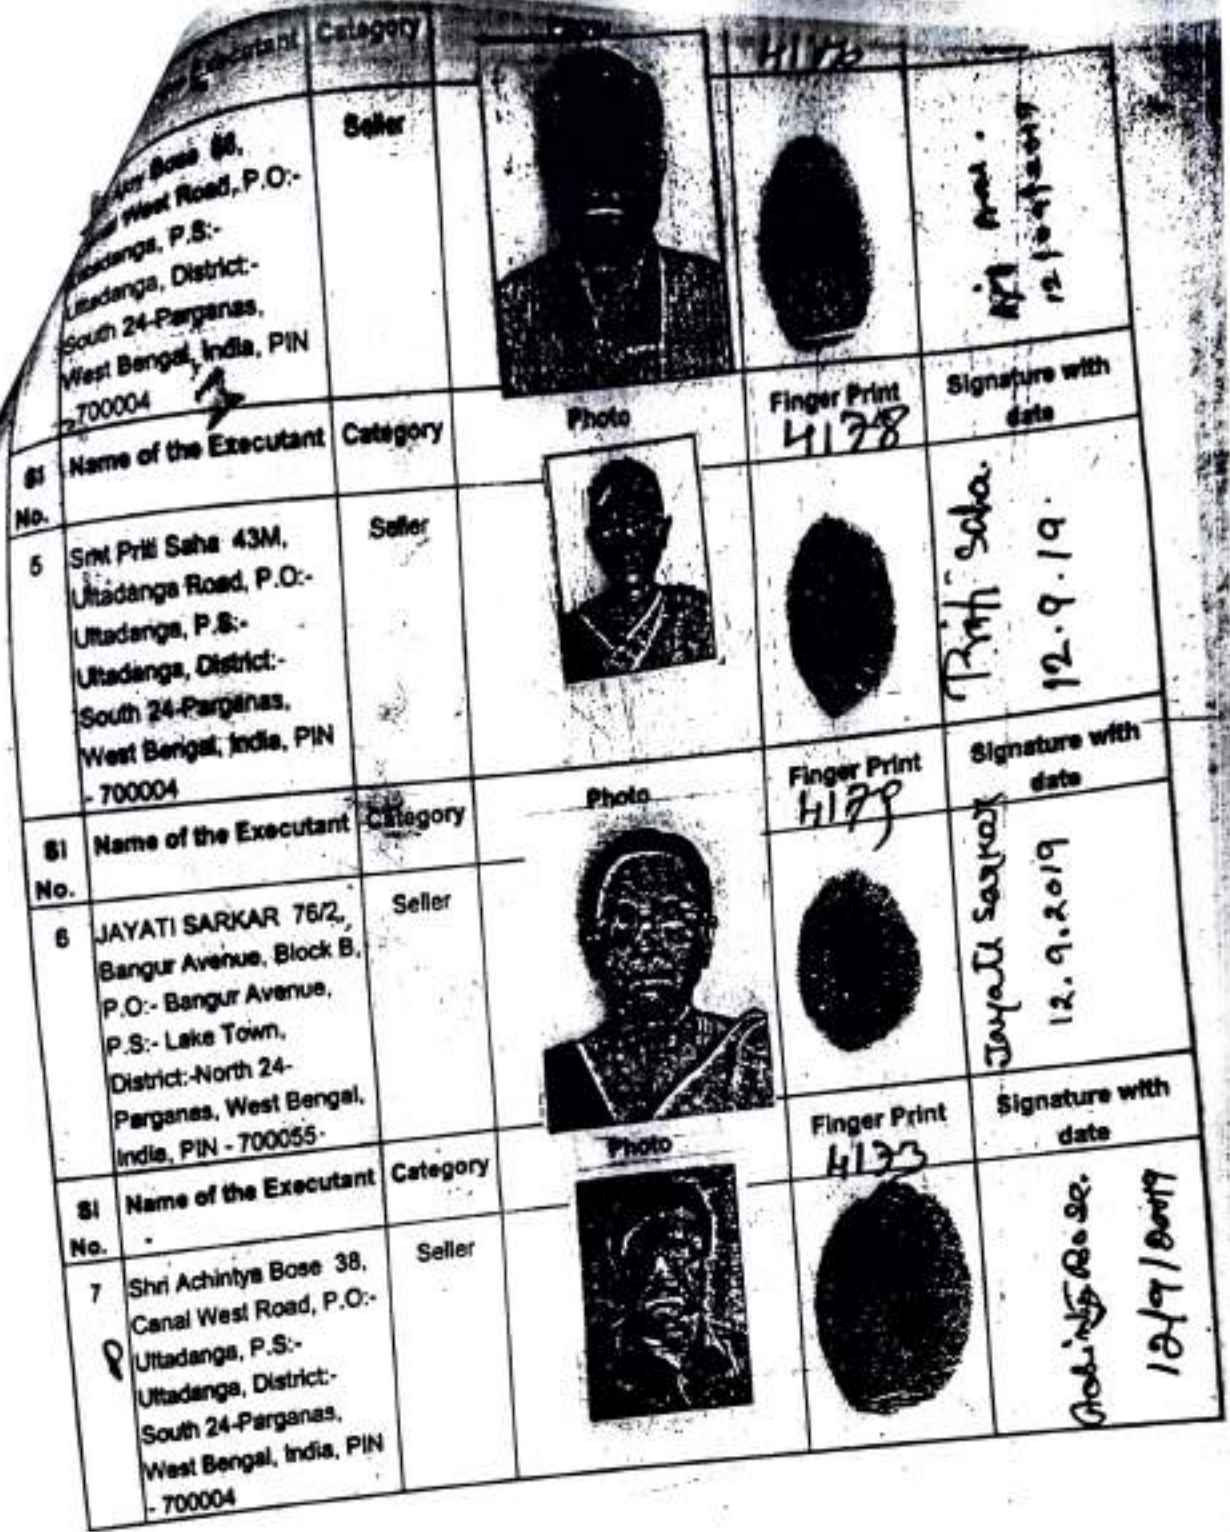 Category
Seller
Bose
West Road, P.O:-
P.S:-
Ultadanga, District:-
South 24-Parganas,
West Bengal, India, PIN
- 700004
12/09/2019
Sl No. Name of the Executant Category Photo Finger Print Signature with date
4178
5
Smt Priti Saha 43M,
Ultadanga Road, P.O:-
Ultadanga, P.S:-
Ultadanga, District:-
South 24-Parganas,
West Bengal, India, PIN
- 700004
Seller
Priti Saha.
12.9.19.
Sl No. Name of the Executant Category Photo Finger Print Signature with date
4179
6
JAYATI SARKAR 76/2,
Bangur Avenue, Block B,
P.O:- Bangur Avenue,
P.S:- Lake Town,
District:-North 24-
Parganas, West Bengal,
India, PIN - 700055
Seller
Jayati Sarkar
12.9.2019
Sl No. Name of the Executant Category Photo Finger Print Signature with date
4173
7
Shri Achintya Bose 38,
Canal West Road, P.O:-
Ultadanga, P.S:-
Ultadanga, District:-
South 24-Parganas,
West Bengal, India, PIN
- 700004
Seller
Bose.
12/9/2019